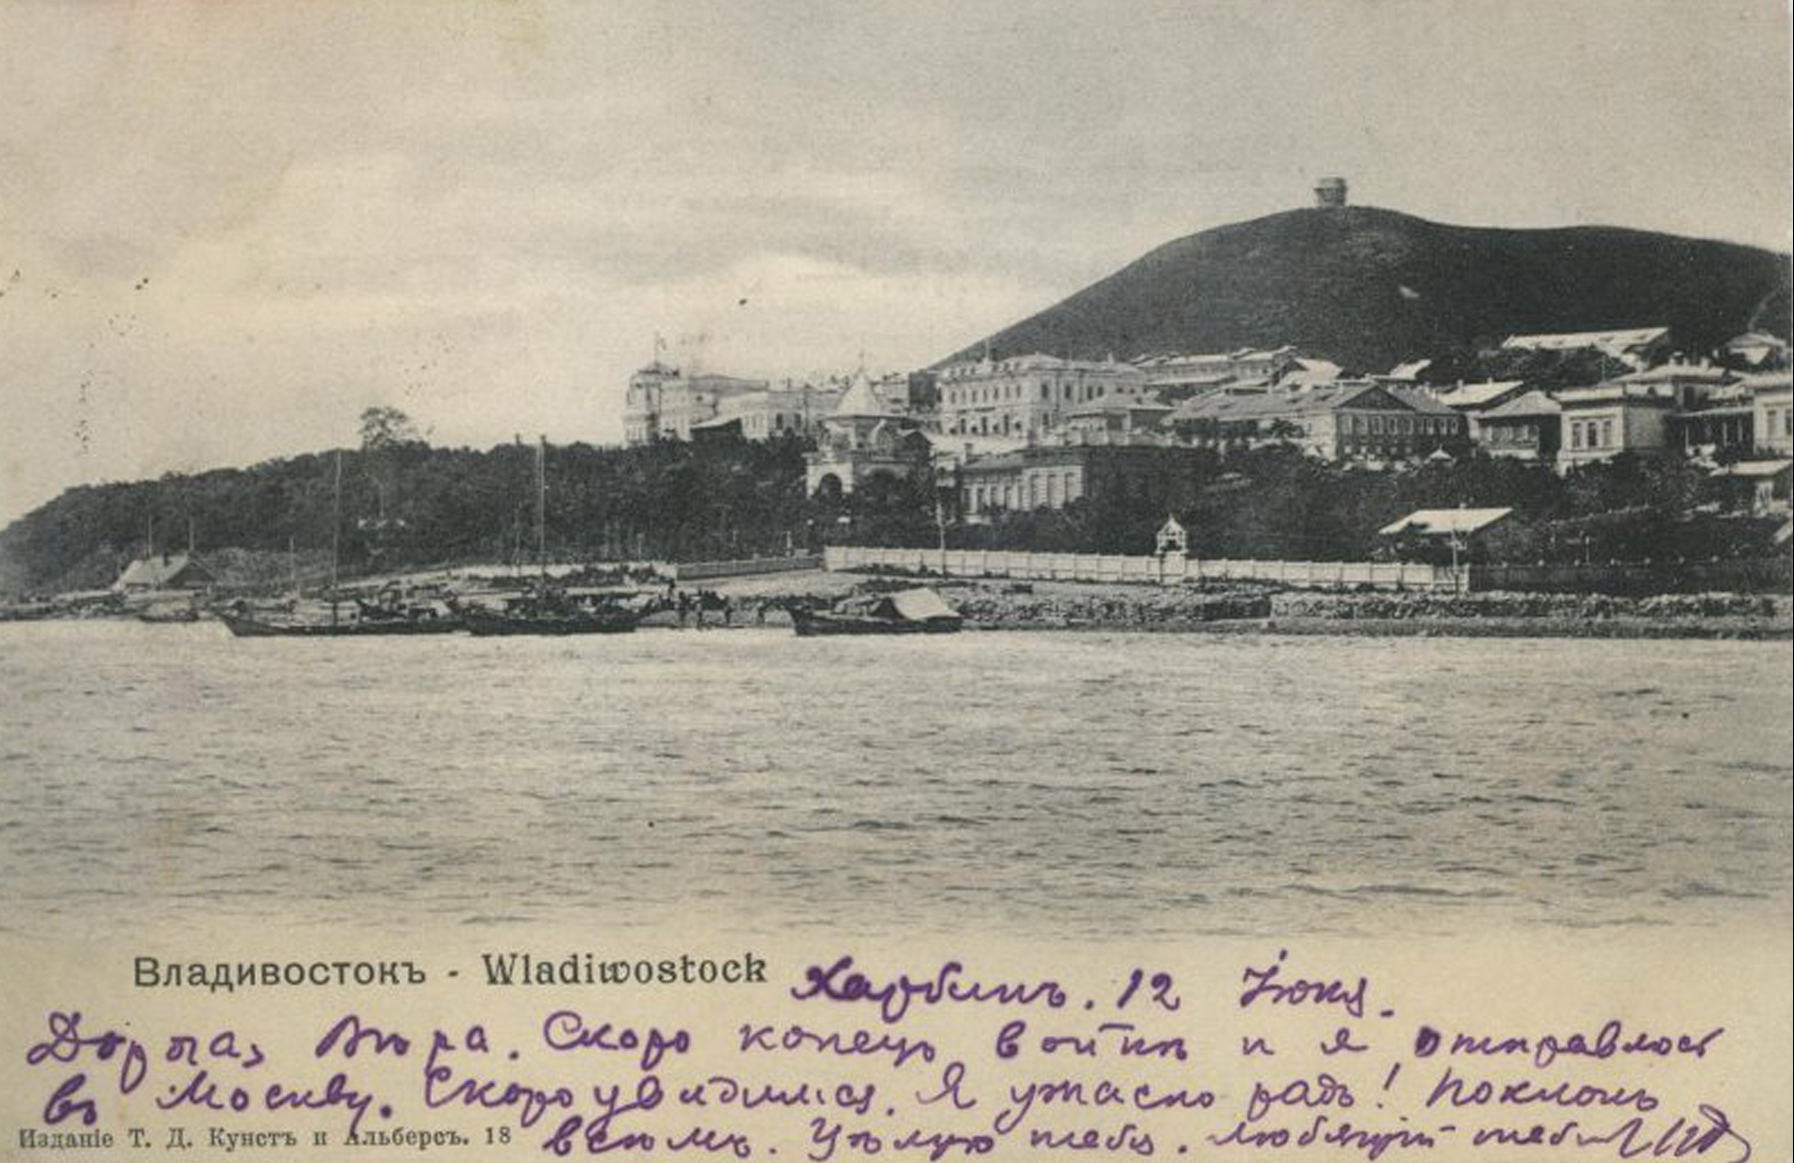 Владивостокъ - Wladiwostock Харбинъ. 12 Iюня.
Дорогая Вѣра. Скоро конецъ войнѣ и я отправлюсь
въ Москву. Скоро увидимся. Я ужасно радъ! Поклонъ
всѣмъ. Цѣлую тебя. Любящiй тебя
Изданiе Т. Д. Кунстъ и Альберсъ. 18